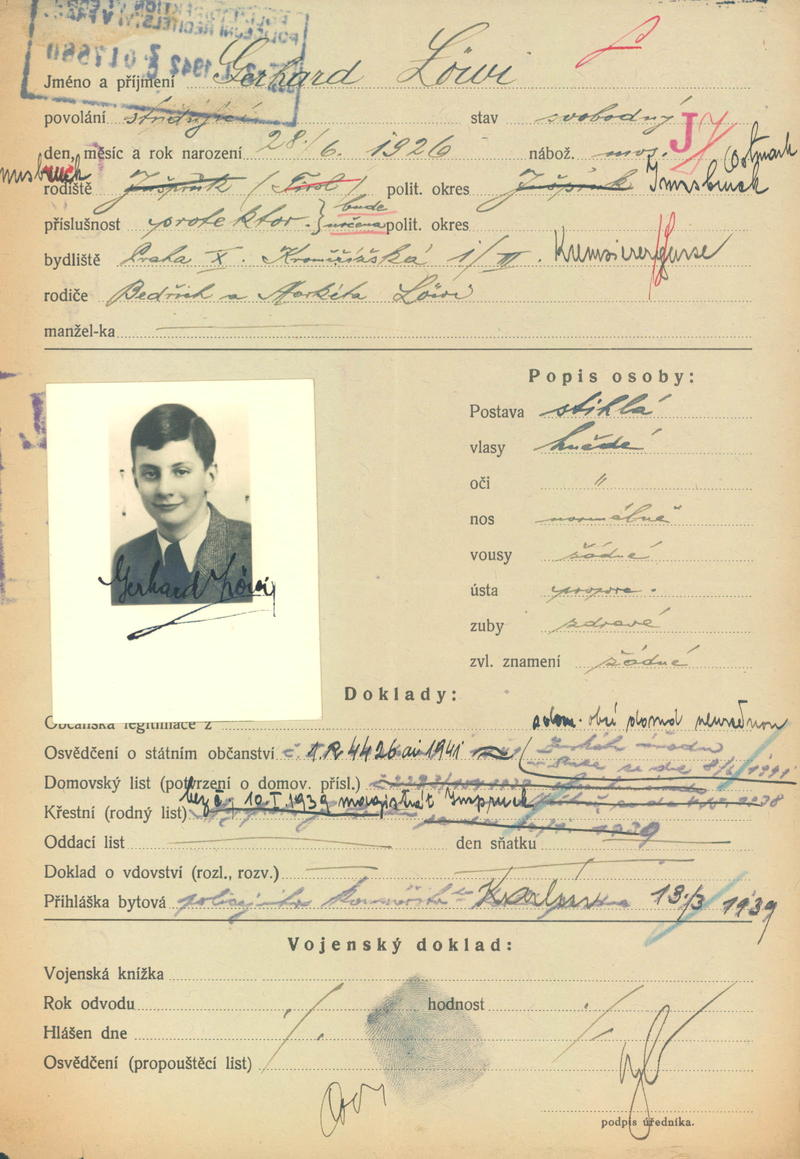 POLICEJNÍ ŘEDITELSTVÍ V PRAZE
1942 017560
Jméno a příjmení Gerhard Löwi
povolání studující stav svobodný
J
den, měsíc a rok narození 28./6. 1926 nábož. mos. Ostmark
Innsbruck
rodiště Jušpruk (Tirol) polit. okres Jušpruk Innsbruck
příslušnost protektor. bude určena polit. okres
bydliště Praha X. Kroměřížská 1/II. Kremsierergasse
rodiče Bedřich a Markéta Löwi
manžel-ka
Popis osoby:
Postava štíhlá
vlasy hnědé
oči "
nos normálně
vousy žádné
ústa
zuby zdravé
zvl. znamení žádné
Gerhard Löwi
Doklady:
Občanská legitimace z
Osvědčení o státním občanství 4426 1941
8/1 1941
Domovský list (potvrzení o domov. přísl.)
Křestní (rodný list) bez č. 10.I.1939 magistrát Inspruck
1939
Oddací list den sňatku
Doklad o vdovství (rozl., rozv.)
Přihláška bytová Karlín 13./3 1939
Vojenský doklad:
Vojenská knížka
Rok odvodu ./. hodnost ./.
Hlášen dne
Osvědčení (propouštěcí list)
podpis úředníka.